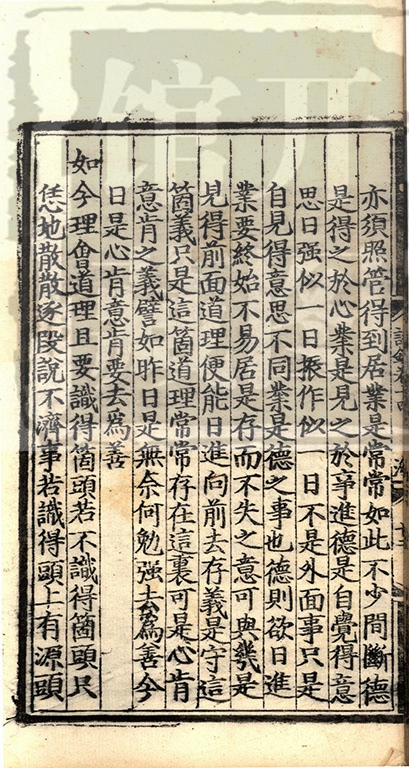 亦須照管得到居業是常常如此不少間斷德
是得之於心業是見之於事進德是自覺得意
思日強似一日振作似一日不是外面事只是
自見得意思不同業是德之事也德則欲日進
業要終始不易居是存而不失之意可與幾是
見得前面道理便能日進向前去存義是守這
箇義只是這箇道理常常存在這裏可是心肯
意肯之義譬如昨日是無奈何勉強去為善今
日是心肯意肯要去為善
如今理會道理且要識得箇頭若不識得箇頭只
恁地散散逐段說不濟事若識得頭上有源頭